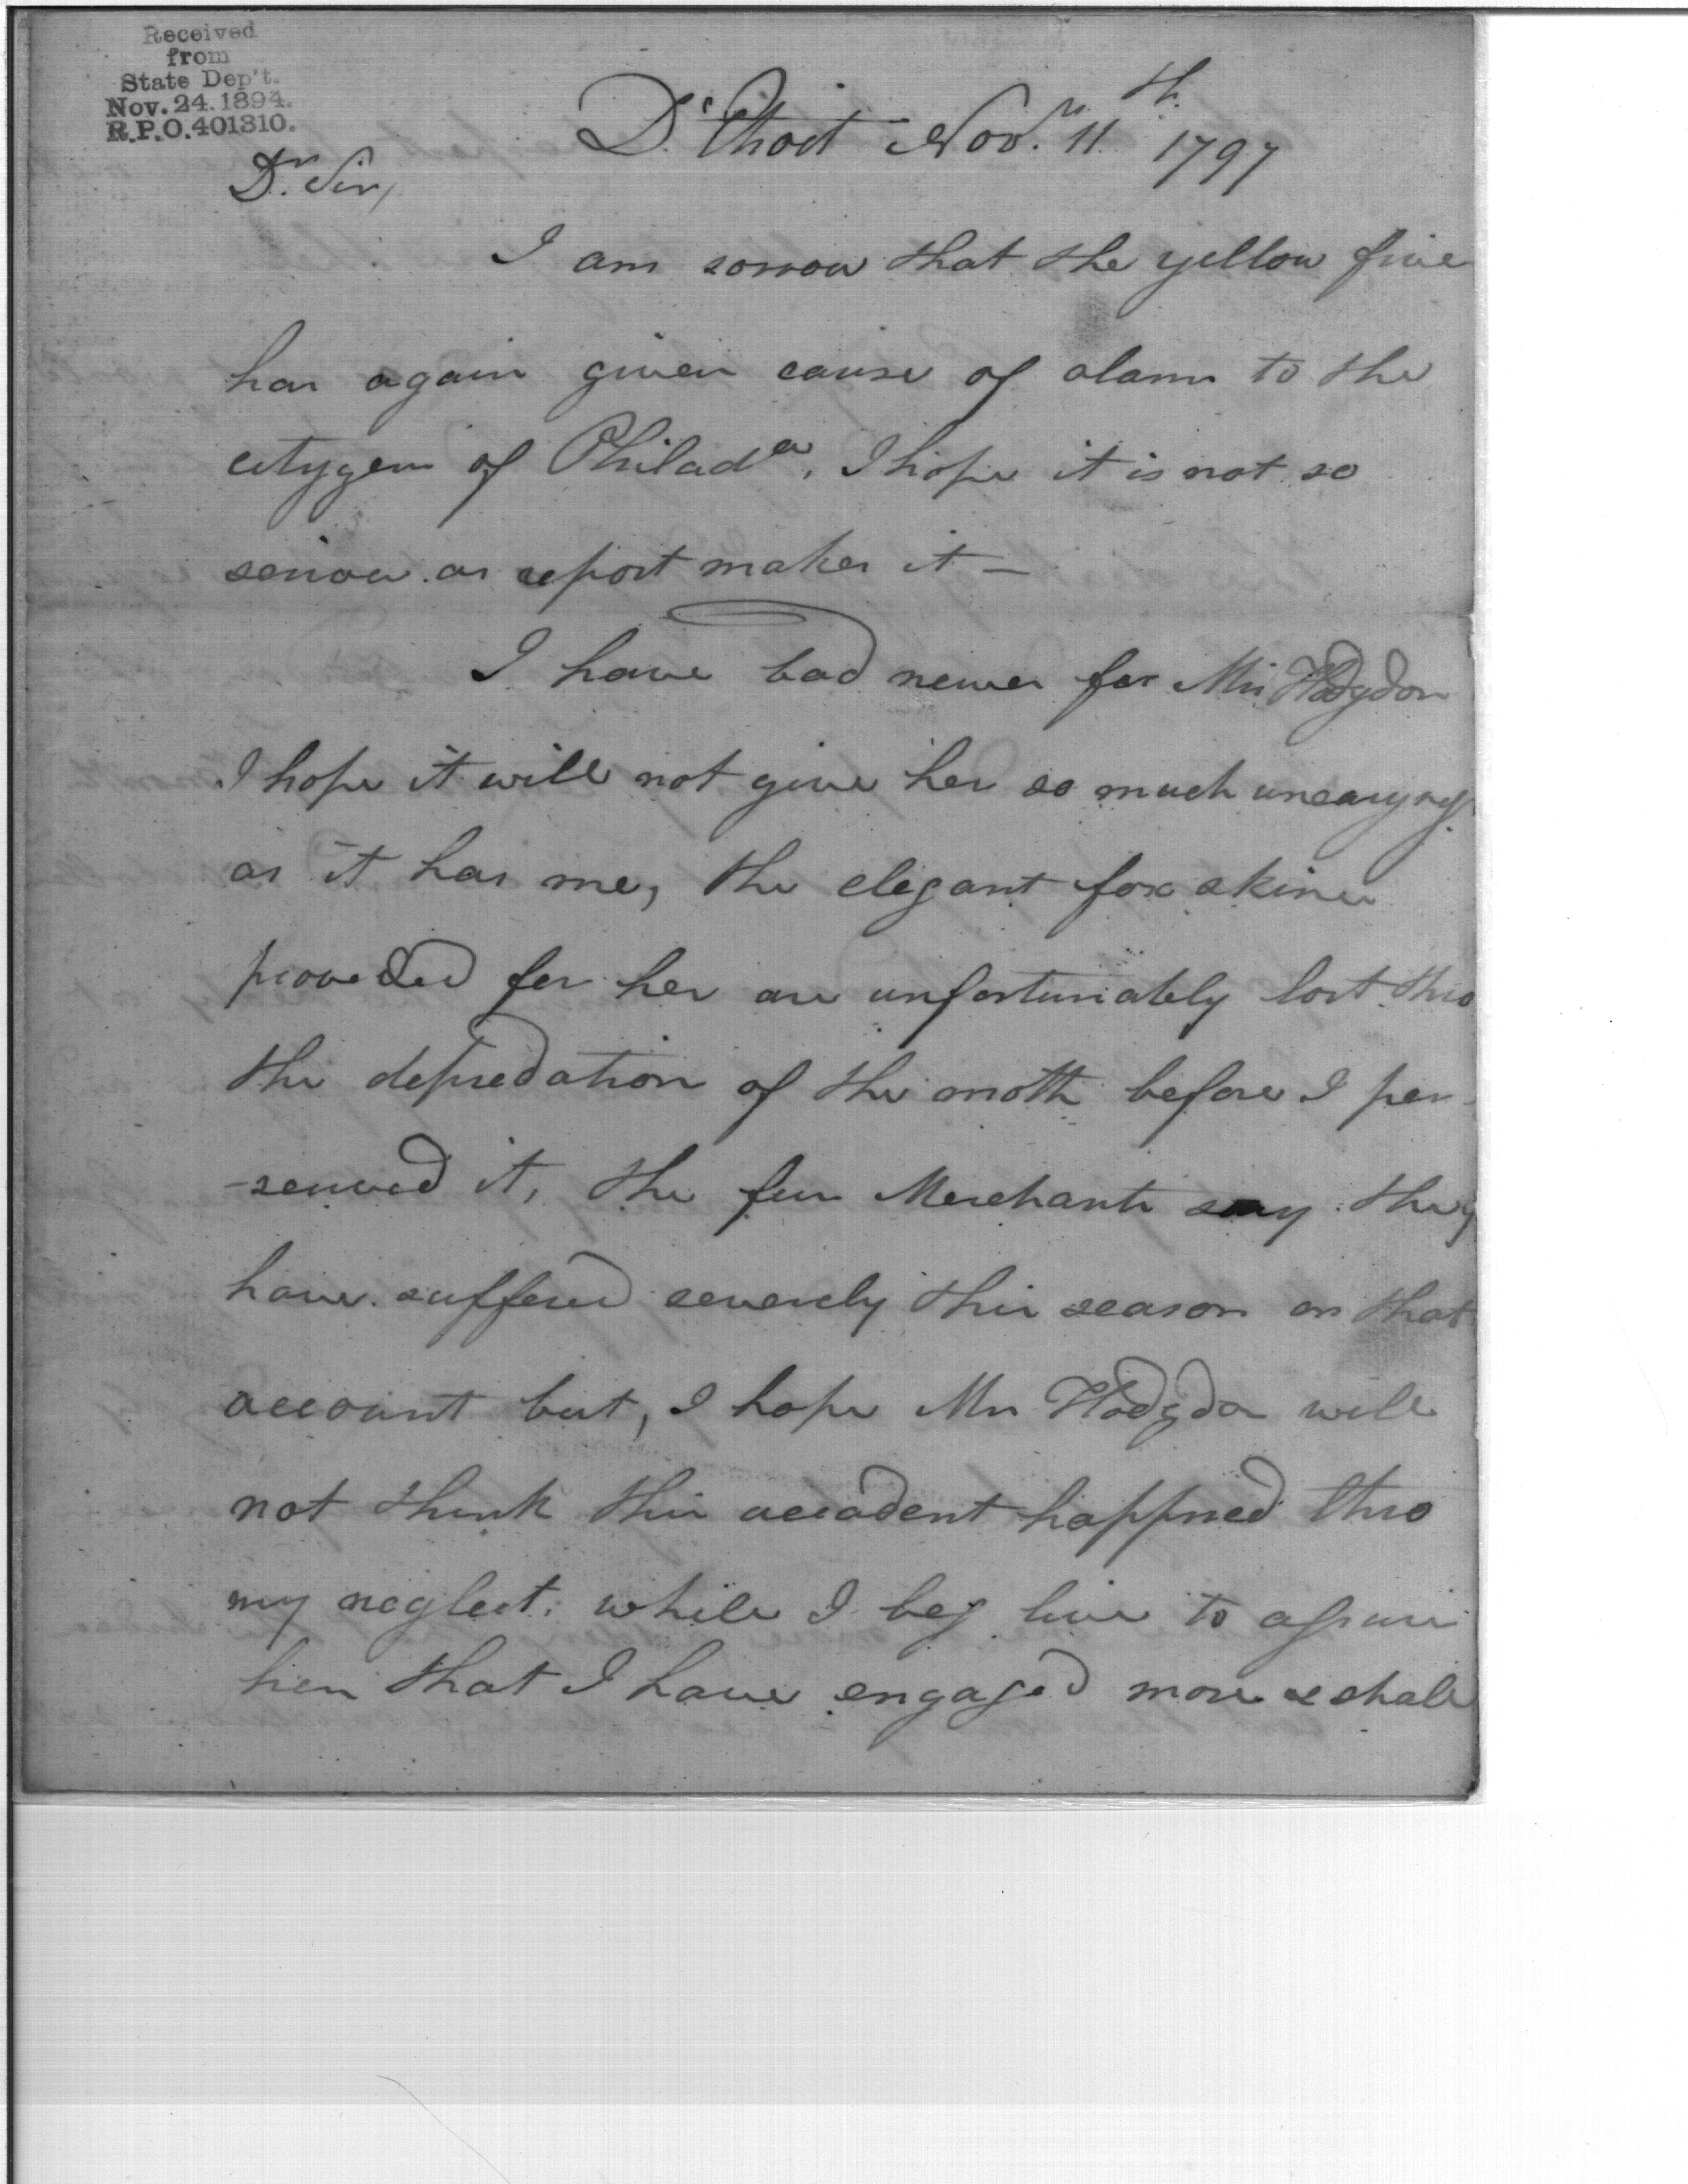 Received
from
State Dep't.
Nov. 24. 1894.
R.P.O. 401310.
D'Etroit Novr. 11th. 1797
Dr. Sir,
I am sorrow that the yellow five
has again given cause of alarm to the
cityzens of Philada. I hope it is not so
serious as report makes it —
I have bad newes for Mrs Hodgdon
I hope it will not give her so much uneasyness
as it has me, the elegant fox skines
proveded for her are unfortunately lost thro
the depredation of the moth before I per
-seived it, the fur Merchants say they
have suffered severely this season on that
account but, I hope Mrs Hodgdon will
not think this accadent happned thro
my neglect. while I beg live to assure
her that I have engaged more & shall